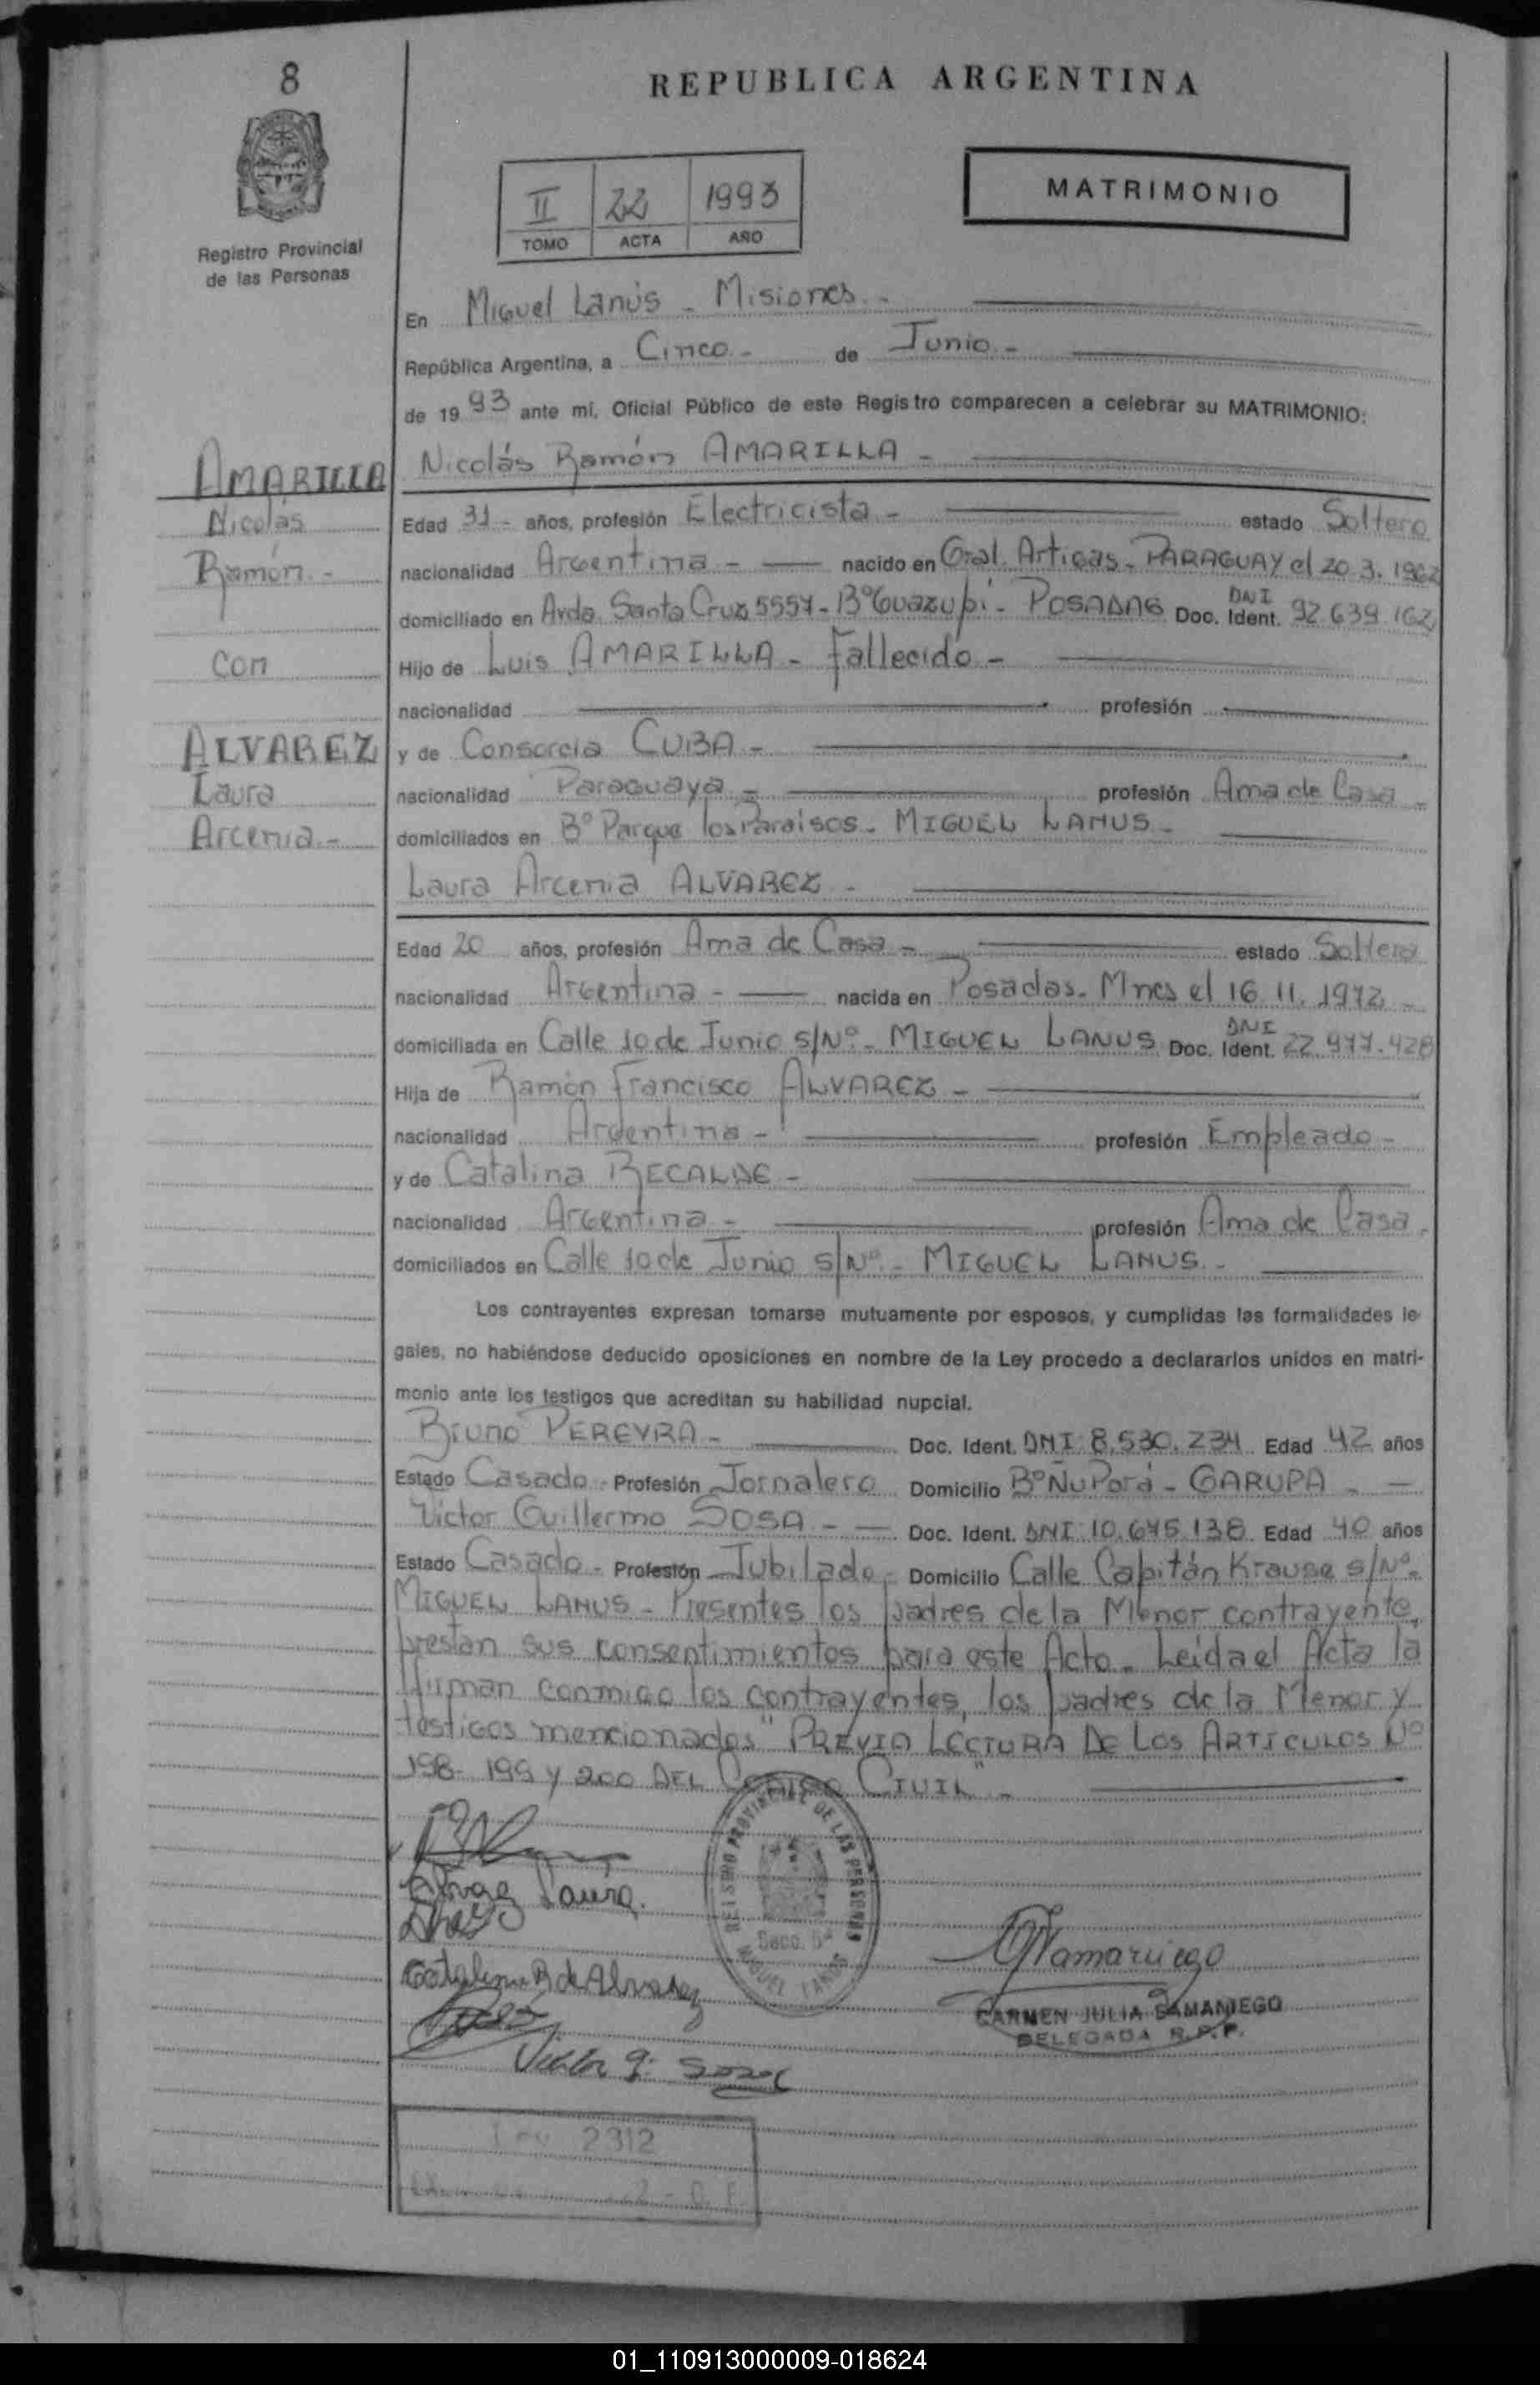 8
REPUBLICA ARGENTINA
II 22 1993
TOMO ACTA AÑO
MATRIMONIO
Registro Provincial
de las Personas
En Miguel Lanús - Misiones -
República Argentina, a Cinco - de Junio -
de 1993 ante mí, Oficial Público de este Registro comparecen a celebrar su MATRIMONIO:
AMARILLA
Nicolás
Ramón -
con
ALVAREZ
Laura
Arcenia -
Nicolás Ramón AMARILLA -
Edad 31 - años, profesión Electricista - estado Soltero
nacionalidad Argentina - nacido en Gral. Artigas - PARAGUAY el 20.3.1962
domiciliado en Avda. Santa Cruz 5557 - B° Guazupi - POSADAS Doc. Ident. DNI 92.639.162
Hijo de Luis AMARILLA - Fallecido -
nacionalidad profesión
y de Consorcia CUBA -
nacionalidad Paraguaya - profesión Ama de Casa -
domiciliados en B° Parque los Paraisos - MIGUEL LANUS -
Laura Arcenia ALVAREZ -
Edad 20 años, profesión Ama de Casa - estado Soltera
nacionalidad Argentina - nacida en Posadas - Mnes el 16.11.1972 -
domiciliada en Calle 10 de Junio s/N° - MIGUEL LANUS Doc. Ident. DNI 22.977.428
Hija de Ramón Francisco ALVAREZ -
nacionalidad Argentina - profesión Empleado -
y de Catalina RECALDE -
nacionalidad Argentina - profesión Ama de Casa -
domiciliados en Calle 10 de Junio s/N° - MIGUEL LANUS -
Los contrayentes expresan tomarse mutuamente por esposos, y cumplidas las formalidades le-
gales, no habiéndose deducido oposiciones en nombre de la Ley procedo a declararlos unidos en matri-
monio ante los testigos que acreditan su habilidad nupcial.
Bruno PEREYRA - Doc. Ident. DNI 8.530.234 Edad 42 años
Estado Casado - Profesión Jornalero Domicilio B° Ñu Porá - GARUPA -
Victor Guillermo SOSA - Doc. Ident. DNI 10.645.138 Edad 40 años
Estado Casado - Profesión Jubilado - Domicilio Calle Capitán Krause s/N° -
MIGUEL LANUS - Presentes los padres de la Menor contrayente,
prestan sus consentimientos para este Acto - Leida el Acta la
firman conmigo los contrayentes, los padres de la Menor y
testigos mencionados "PREVIA LECTURA DE LOS ARTICULOS N°
198 - 199 y 200 DEL CODIGO CIVIL" -
Laura
REGISTRO PROVINCIAL DE LAS PERSONAS
Secc. 5ª
MIGUEL LANUS
Catalina R de Alvarez
Victor G. Sosa
CARMEN JULIA SAMANIEGO
DELEGADA R.P.P.
Ley 2312
01_110913000009-018624